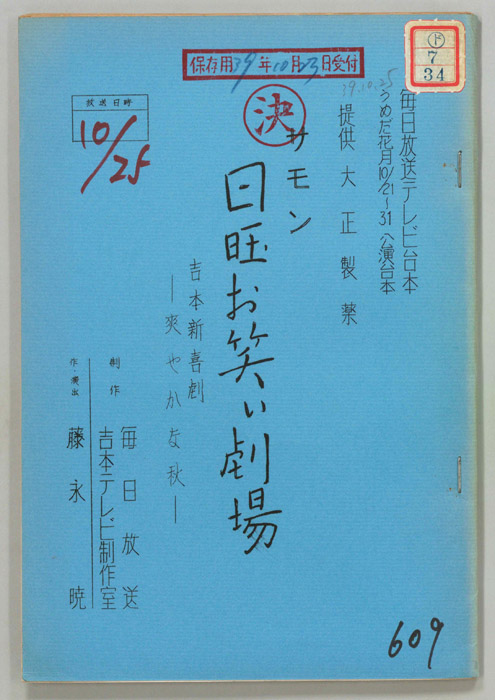 保存用39年10月23日受付
ド
7
34
39.10.25
毎日放送テレビ台本
うめだ花月10/21〜31公演台本
提供 大正製薬
決
サモン
日旺お笑い劇場
吉本新喜劇
―爽やかな秋―
放送日時
10/25
制作 毎日放送
吉本テレビ制作室
作・演出 藤永 暁
609